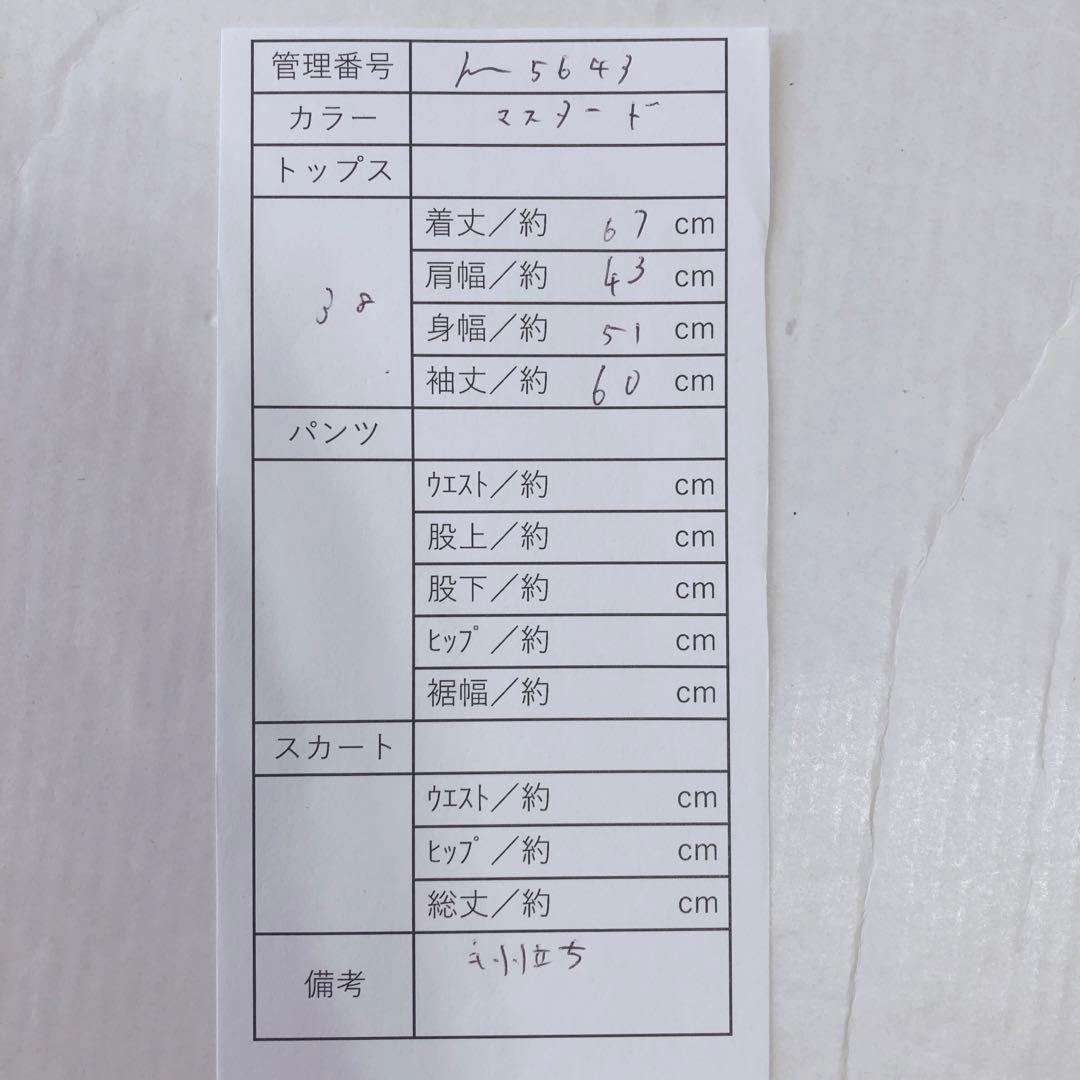 管理番号 5643
カラー マスタード
トップス
38
着丈／約 67 cm
肩幅／約 43 cm
身幅／約 51 cm
袖丈／約 60 cm
パンツ
ｳｴｽﾄ／約 cm
股上／約 cm
股下／約 cm
ﾋｯﾌﾟ／約 cm
裾幅／約 cm
スカート
ｳｴｽﾄ／約 cm
ﾋｯﾌﾟ／約 cm
総丈／約 cm
備考 毛羽立ち